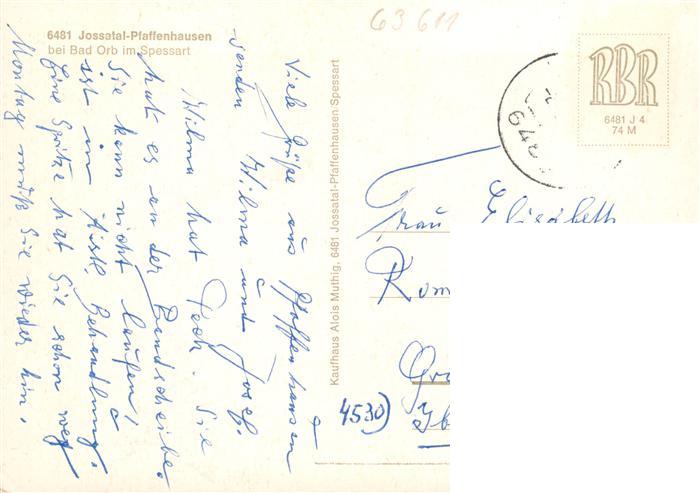 63611
6481 Jossatal-Pfaffenhausen
bei Bad Orb im Spessart
Viele Grüße aus Pfaffenhausen
senden Wilma und Josef.
Wilma hat Pech. Sie
hat es an der Bandscheibe.
Sie kann nicht laufen,
ist in ärztl. Behandlung.
Eine Spritze hat Sie schon weg
Montag muß Sie wieder hin.
Kaufhaus Alois Muthig, 6481 Jossatal-Pfaffenhausen Spessart
RBR
6481 J 4
74 M
648
Frau Elisabeth
Rom
4530) Ib